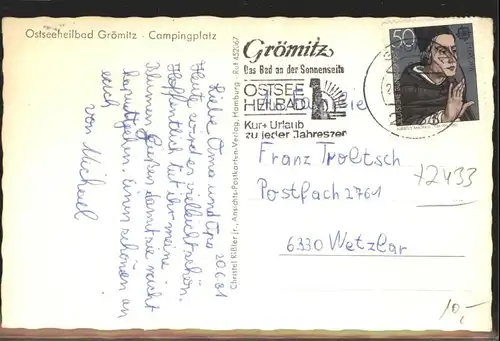 Ostseeheilbad Grömitz - Campingplatz
Liebe Oma und Opa 20.6.81
Heute wird es vielleicht schön.
Hoffentlich tut ihr meine
Blumen gießen damit sie nicht
kaputtgehen. Einen schönen an
euch
von Michael
Christel Rißler jr., Ansichts-Postkarten-Verlag, Hamburg · Ruf 452067
Grömitz
Das Bad an der Sonnenseite
OSTSEE
HEILBAD
Kur + Urlaub
zu jeder Jahreszeit
50
Franz Troltsch
Postfach 2761
6330 Wetzlar
x2433
10,-